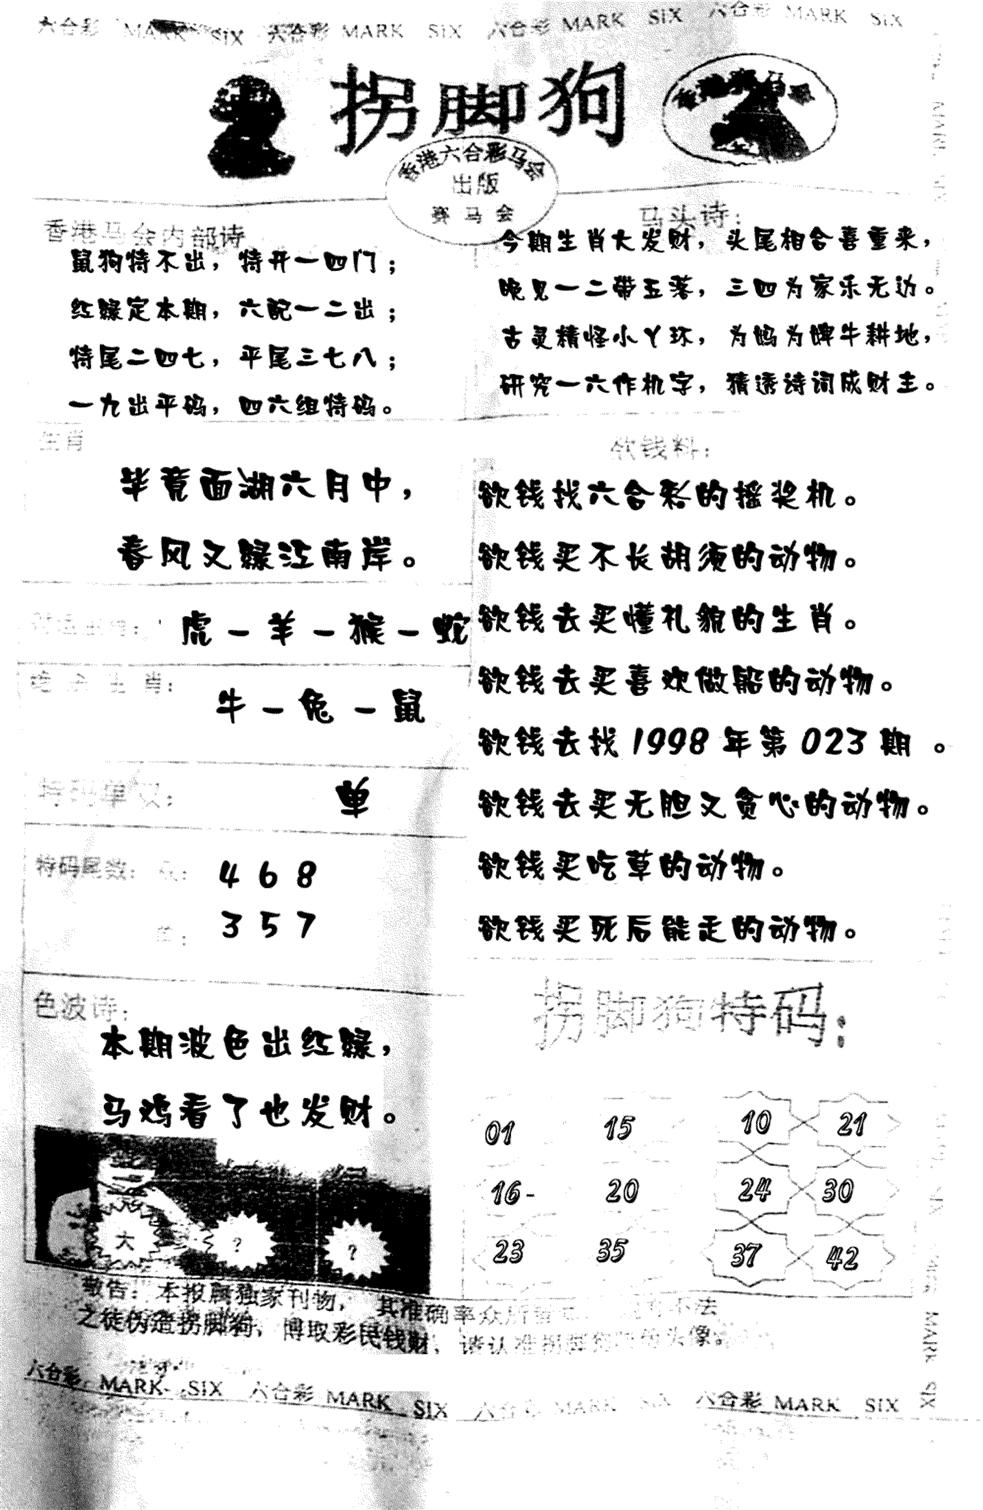 六合彩 MARK SIX 六合彩 MARK SIX 六合彩 MARK SIX 六合彩 MARK SIX
拐脚狗
香港六合彩马会
出版
赛马会
香港马会内部诗
鼠狗特不出，特开一四门；
红绿定本期，六配一二出；
特尾二四七，平尾三七八；
一九出平码，四六组特码。
马头诗：
今期生肖大发财，头尾相合喜重来，
晚见一二带玉落，三四为家乐无边。
古灵精怪小丫环，为妈为婢牛耕地，
研究一六作机字，猜透诗词成财主。
生肖
毕竟面湖六月中，
春风又绿江南岸。
虎－羊－猴－蛇
绝杀生肖：
牛－兔－鼠
特码单双：
单
特码尾数：双：
4 6 8
单：
3 5 7
色波诗：
本期波色出红绿，
马鸡看了也发财。
大
?
?
欲钱料：
欲钱找六合彩的摇奖机。
欲钱买不长胡须的动物。
欲钱去买懂礼貌的生肖。
欲钱去买喜欢做船的动物。
欲钱去找1998年第023期 。
欲钱去买无胆又贪心的动物。
欲钱买吃草的动物。
欲钱买死后能走的动物。
拐脚狗特码：
01 15 10 21
16- 20 24 30
23 35 37 42
敬告：本报属独家刊物，其准确率众所 不法
之徒伪造拐脚狗，博取彩民钱财，请认准拐脚狗 头像。
六合彩 MARK SIX 六合彩 MARK SIX 六合彩 MARK SIX 六合彩 MARK SIX
MARK SIX